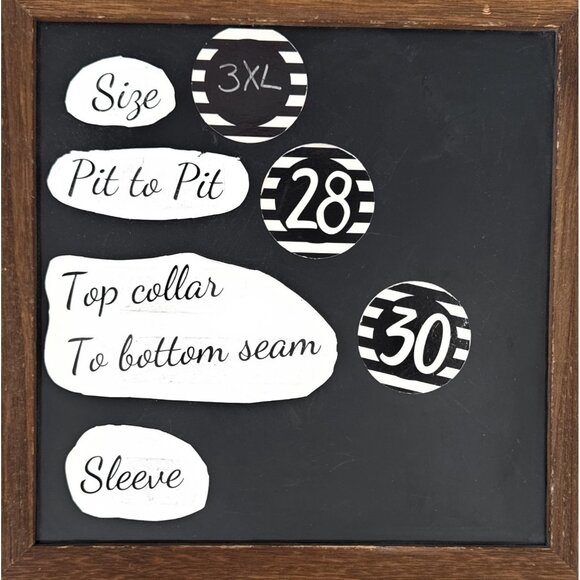 Size 3XL
Pit to Pit 28
Top collar
To bottom seam 30
Sleeve